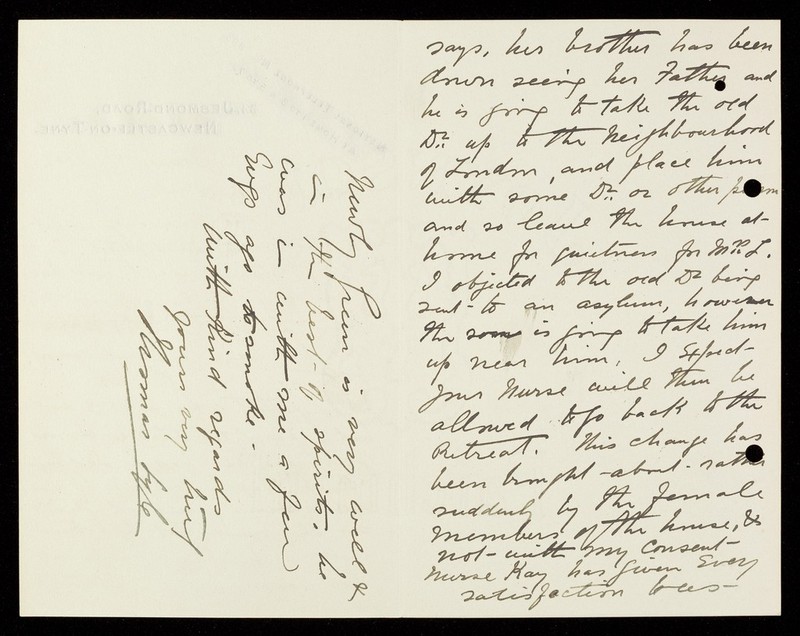 says, her brother has been
down seeing her Father and
he is going to take the old
Dr. up to the Neighbourhood
of London, and place him
with some Dr. or other
and so leave the house at-
home for quietness for Mrs L.
I objected to the old Dr. being
sent- to an asylum, however
the son is going to take him
up near him, I Expect-
your Nurse will then be
allowed to go back to the
Retreat. This change has
been brought-about-rather
suddenly by the female
members of the house, &
not-with my Consent-
Nurse Kay has given Every
satisfaction
is very well &
in the best-of spirits. he
was in with me a few
ago to smoke.
With Kind regards
yours very truly
Thomas
31 JESMOND ROAD,
NEWCASTLE-ON-TYNE.